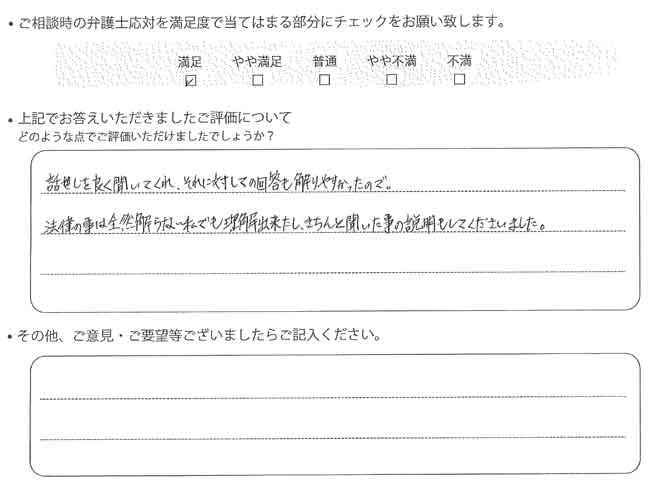 ・ご相談時の弁護士応対を満足度で当てはまる部分にチェックをお願い致します。
満足 やや満足 普通 やや不満 不満
☑ □ □ □ □
・上記でお答えいただきましたご評価について
どのような点でご評価いただけましたでしょうか?
話せしを良く聞いてくれ、それに対しての回答も解りやすかったので。
法律の事は全然解らない私でも理解出来たし、きちんと聞いた事の説明もしてくださいました。
・その他、ご意見・ご要望等ございましたらご記入ください。